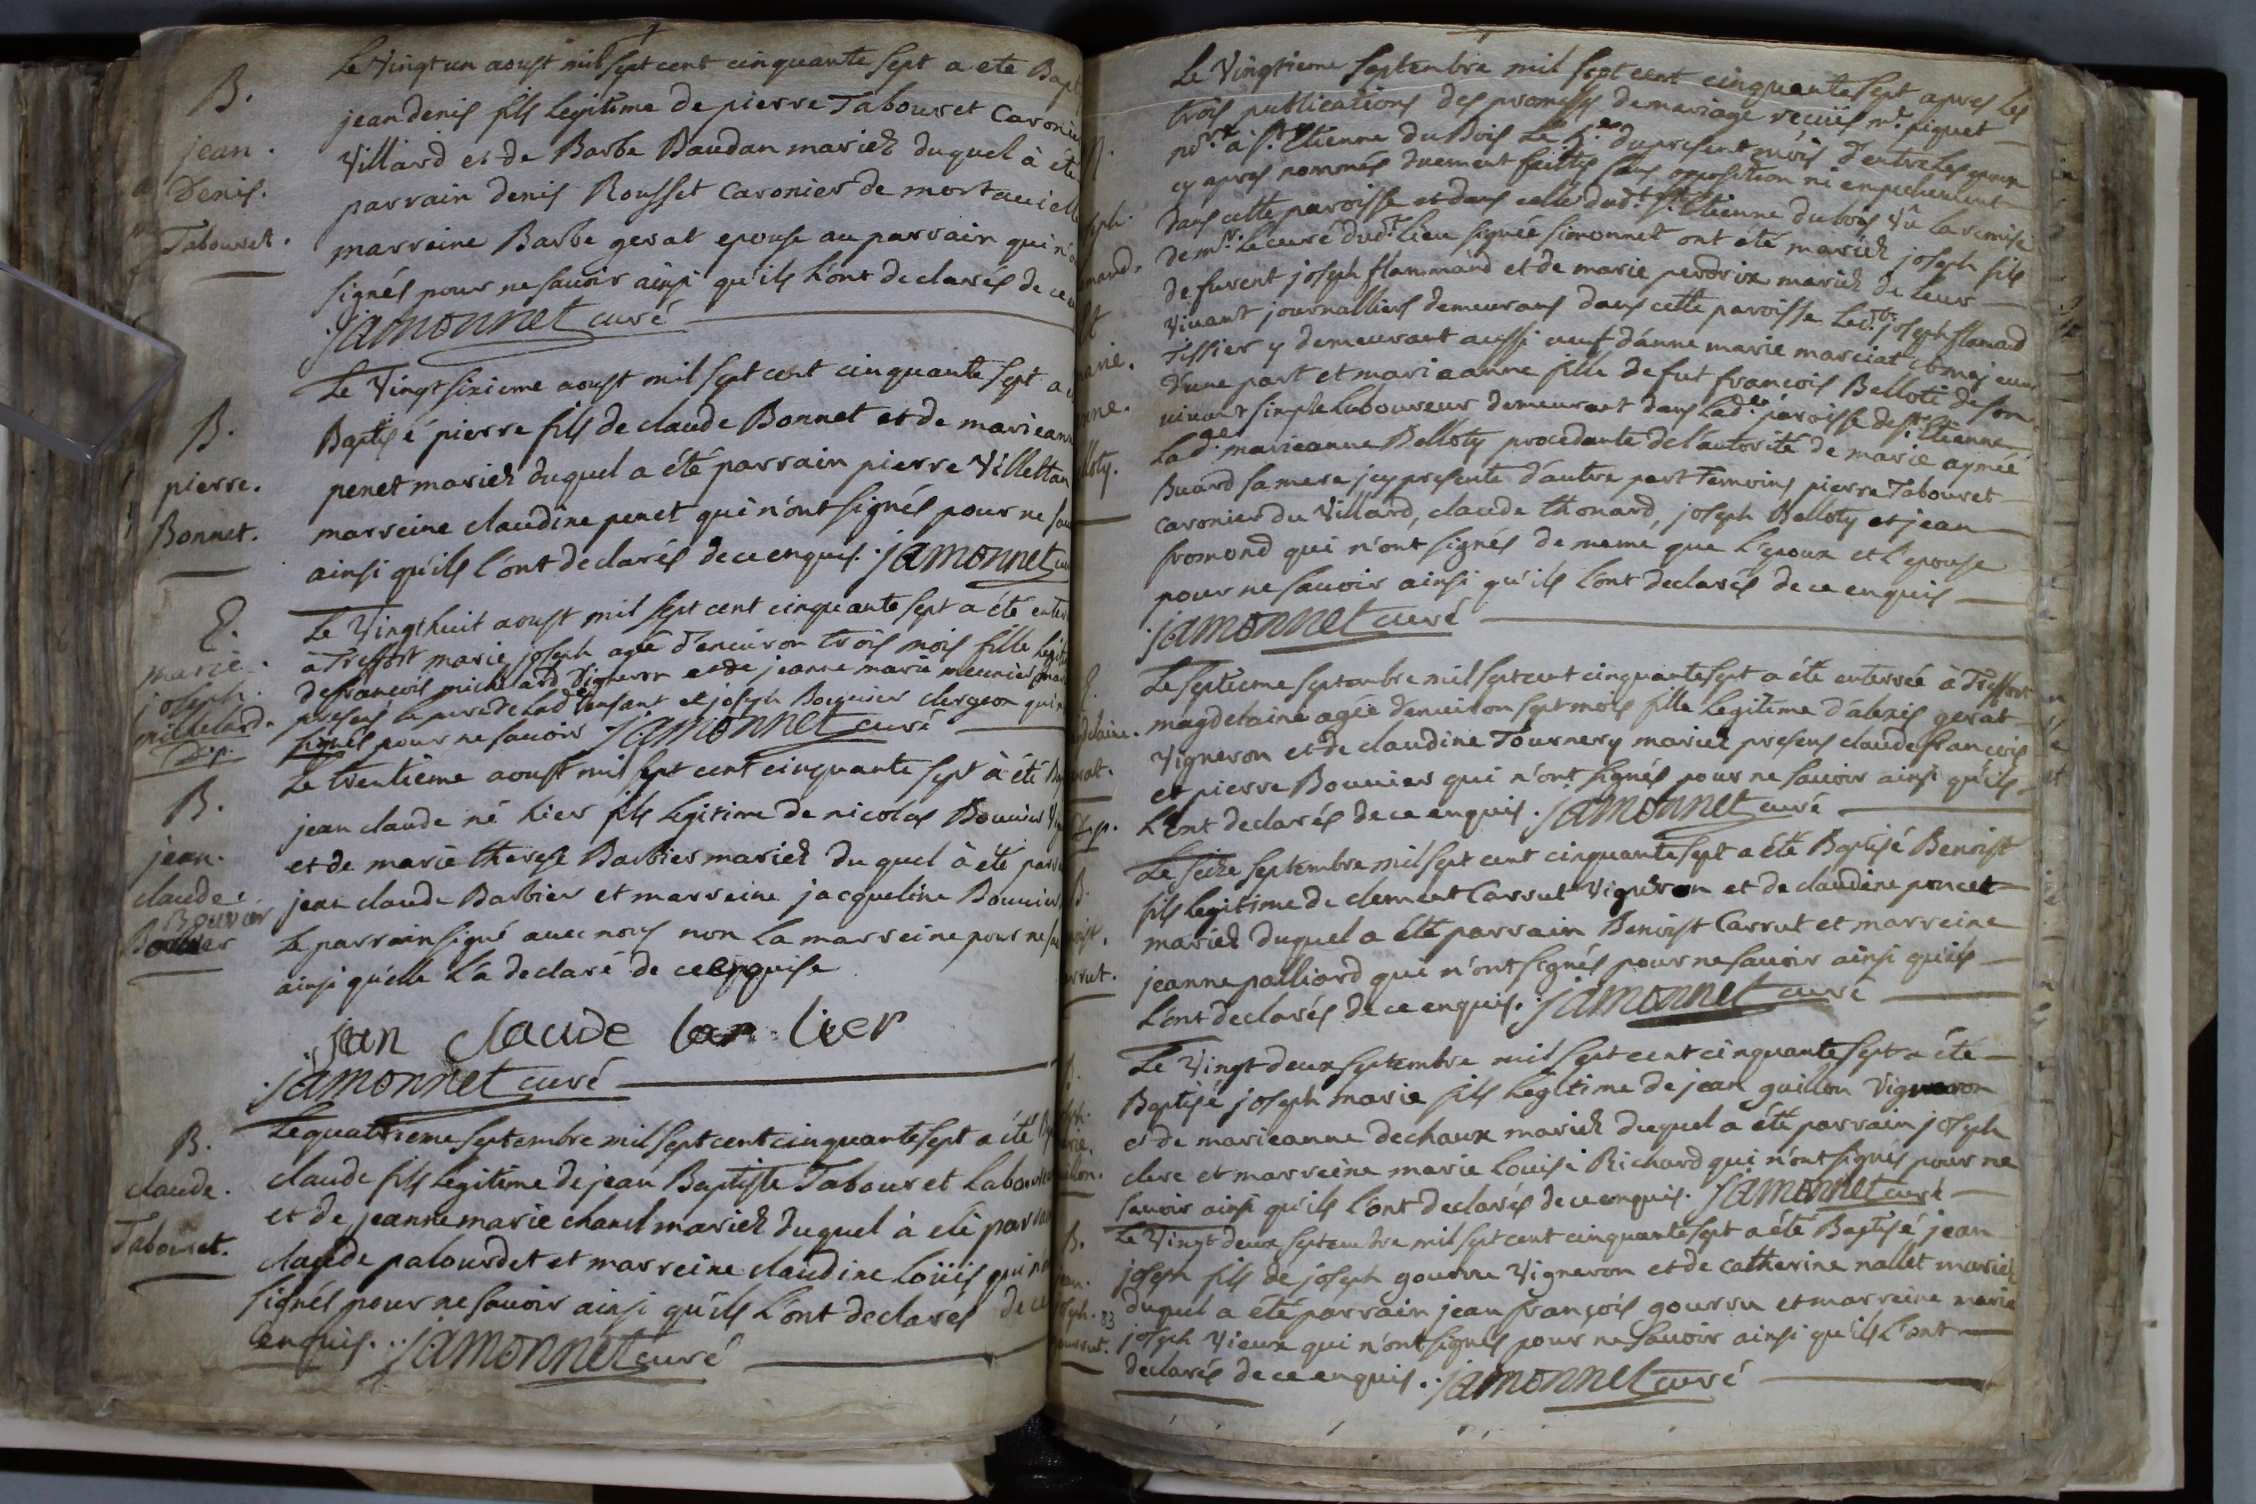 B.
jean.
Denis.
Tabouret.
Le Vingt un aoust mil sept cent cinquante sept a ete Bapt
jean denis fils legitime de pierre Tabouret Caronier
Villard et de Barbe Baudan mariez duquel à été
parrain denis Rousset Caronier de
marreine Barbe gerat epouse au parrain qui n'o
signés pour ne savoir ainsi qu'ils l'ont declarés de ce
jamonnet curé
B.
pierre.
Bonnet.
Le Vingt sixieme aoust mil sept cent cinquante sept a
Baptisé pierre fils de claude Bonnet et de marieann
penet mariez duquel a été parrain pierre
marreine claudine penet qui n'ont signés pour ne sau
ainsi qu'ils l'ont declarés de ce enquis. jamonnet cu
E.
marie.
joseph.
michelard.
Le Vingt huit aoust mil sept cent cinquante sept a été enter
à Treffort marie joseph agée d'environ trois mois fille legit
de françois michelard Vigneron et de jeanne marie meunier
presens le pere de lad. enfant et joseph Boguier clergeon qui n
signés pour ne savoir jamonnet curé
B.
jean.
claude.
Bouvier
Le trentième aoust mil sept cent cinquante sept à été
jean claude né hier fils legitime de nicolas Bouvier
et de marie therese Barbier mariez du quel à été parr
jean claude Barbier et marreine jacqueline Bouvier
Le parrain signé avec nous non la marreine pour ne s
ainsi qu'elle l'a declaré de ce enquise
jan claude bar bier
jamonnet curé
B.
claude.
Tabouret.
Le quatrieme septembre mil sept cent cinquante sept a été
claude fils legitime de jean Baptiste Tabouret Laboureur
et de jeanne marie chanel mariez duquel à été parrain
claude palourdet et marreine claudine loüis qui n'
signés pour ne savoir ainsi qu'ils l'ont declarés de ce
enquis. jamonnet curé
Le Vingtieme septembre mil sept cent cinquante sept apres les
trois publications des promesses de mariage recüës mr. piguet
nore. à St. Etienne du Bois Le du present mois d'entre les
cy apres nommés duement faittes sans opposition ni empechement
dans cette paroisse et dans celle dud. St. Etienne du bois Vû la remise
de mr. le curé dud. lieu signée simonnet ont été mariez joseph fils
de furent joseph flammand et de marie perdrix mariez de leur
vivant journalliers demeurans dans cette paroisse led. joseph flamand
Tissier y demeurant aussi veuf d'anne marie marciat
d'une part et marieanne fille de fut françois Belloti de son
vivant simple laboureur demeurant dans lad. paroisse de St. Etienne
Lad. marieanne Belloty procedante de l'autorité de marie aynée
Buard sa mere jcy presente d'autre part Temoins pierre Tabouret
caronier du Villard, claude thonard, joseph Belloty et jean
fromond qui n'ont signés de meme que l'epoux et l'epouse
pour ne savoir ainsi qu'ils l'ont declarés de ce enquis
jamonnet curé
Le septieme septembre mil sept cent cinquante sept a été enterrée à Treffort
magdelaine agée d'environ sept mois fille legitime d'alexis gerat
Vigneron et de claudine Tournery mariez presens claude françois
et pierre Bouvier qui n'ont signés pour ne savoir ainsi qu'ils
l'ont declarés de ce enquis. jamonnet curé
Le seize septembre mil sept cent cinquante sept a été Baptisé Benoist
fils legitime de clement Carrut Vigneron et de claudine poncet
mariez duquel a été parrain Benoist Carrut et marreine
jeanne palliard qui n'ont signés pour ne savoir ainsi qu'ils
l'ont declarés de ce enquis. jamonnet curé
Le Vingt deux septembre mil sept cent cinquante sept a été
Baptisé joseph marie fils legitime de jean guillon Vigneron
et de marieanne dechaux mariez duquel a été parrain joseph
clerc et marreine marie louise Richard qui n'ont signés pour ne
savoir ainsi qu'ils l'ont declarés de ce enquis. jamonnet curé
Le Vingt deux septembre mil sept cent cinquante sept a été Baptisé jean
joseph fils de joseph gourru Vigneron et de catherine nallet mariez
duquel a été parrain jean françois gourru et marreine marie
joseph Vieux qui n'ont signés pour ne savoir ainsi qu'ils l'ont
declarés de ce enquis. jamonnet curé